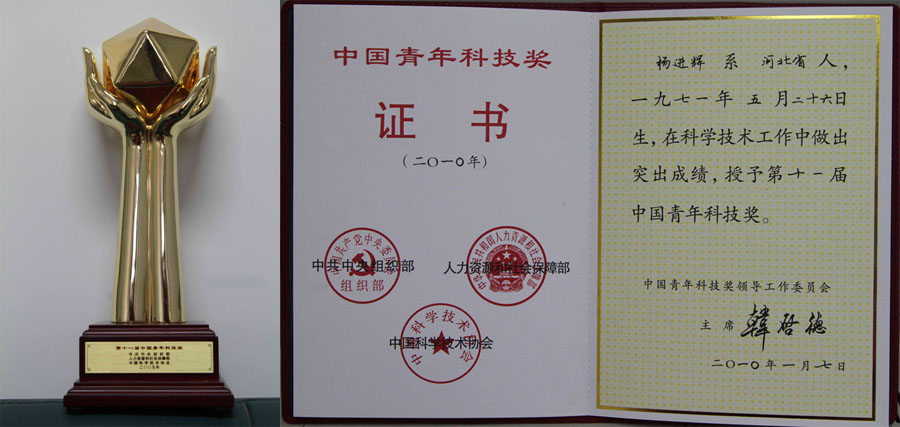 第十一届中国青年科技奖
中共中央组织部
人力资源和社会保障部
中国科学技术协会
二〇〇九年
中国青年科技奖
证 书
(二〇一〇年)
中共中央组织部
组织部
人力资源和社会保障部
中国科学技术协会
杨进辉 系 河北省 人，
一九七一年 五 月二十六日
生，在科学技术工作中做出
突出成绩，授予第十一届
中国青年科技奖。
中国青年科技奖领导工作委员会
主席 韩启德
二〇一〇年一月七日